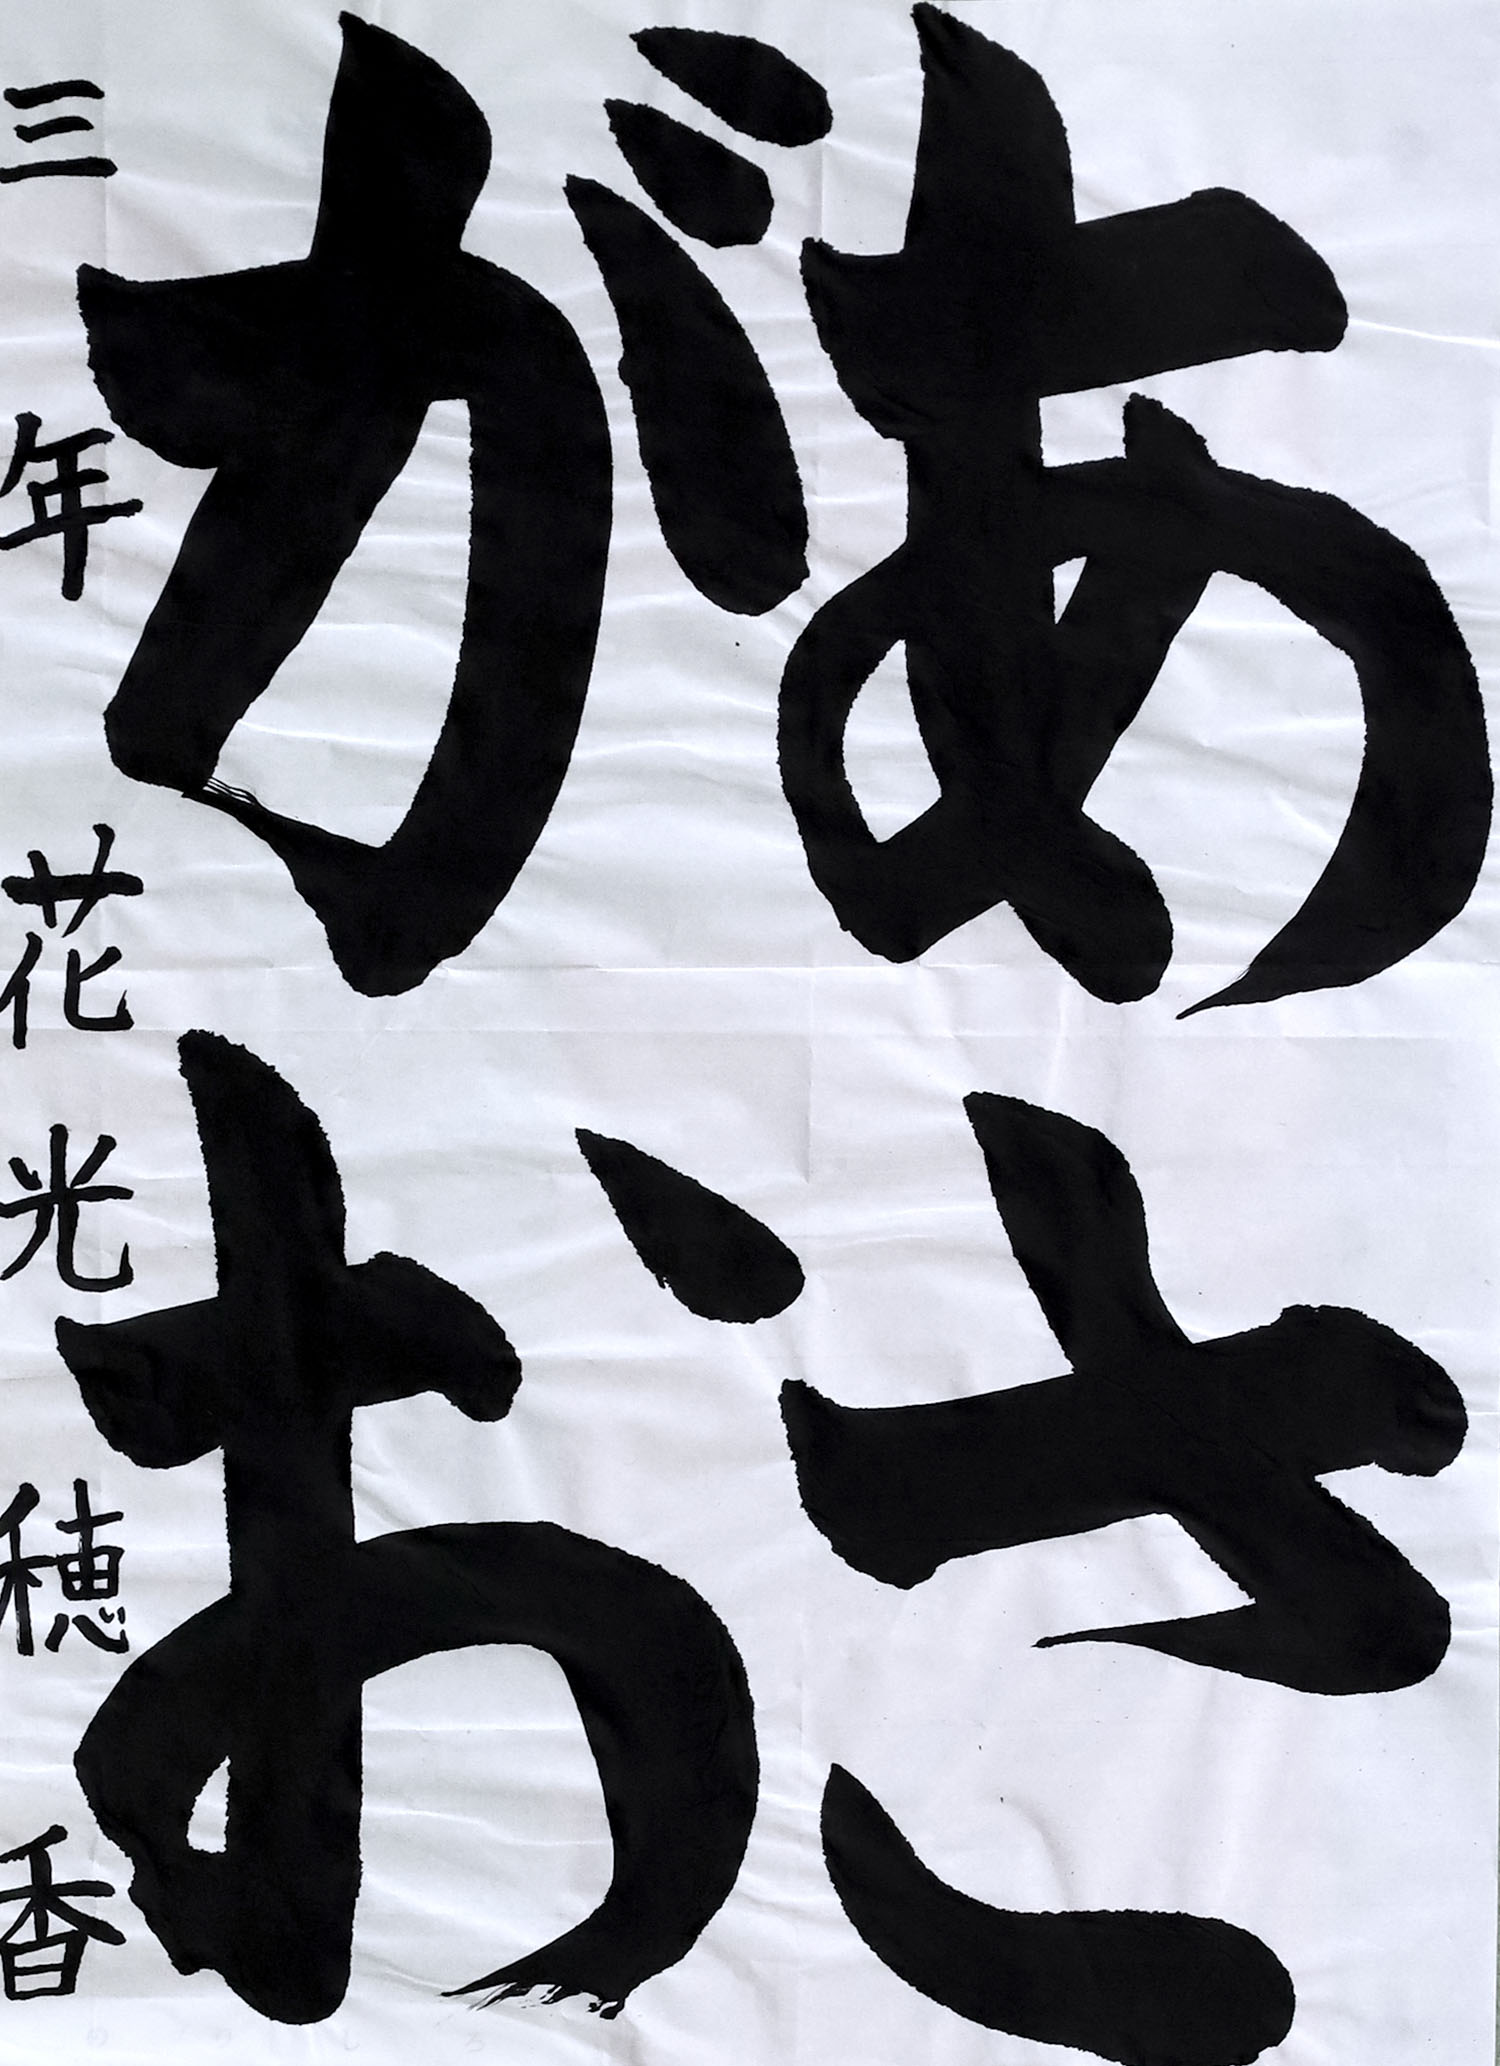 あさ
がお
三年 花光穂香